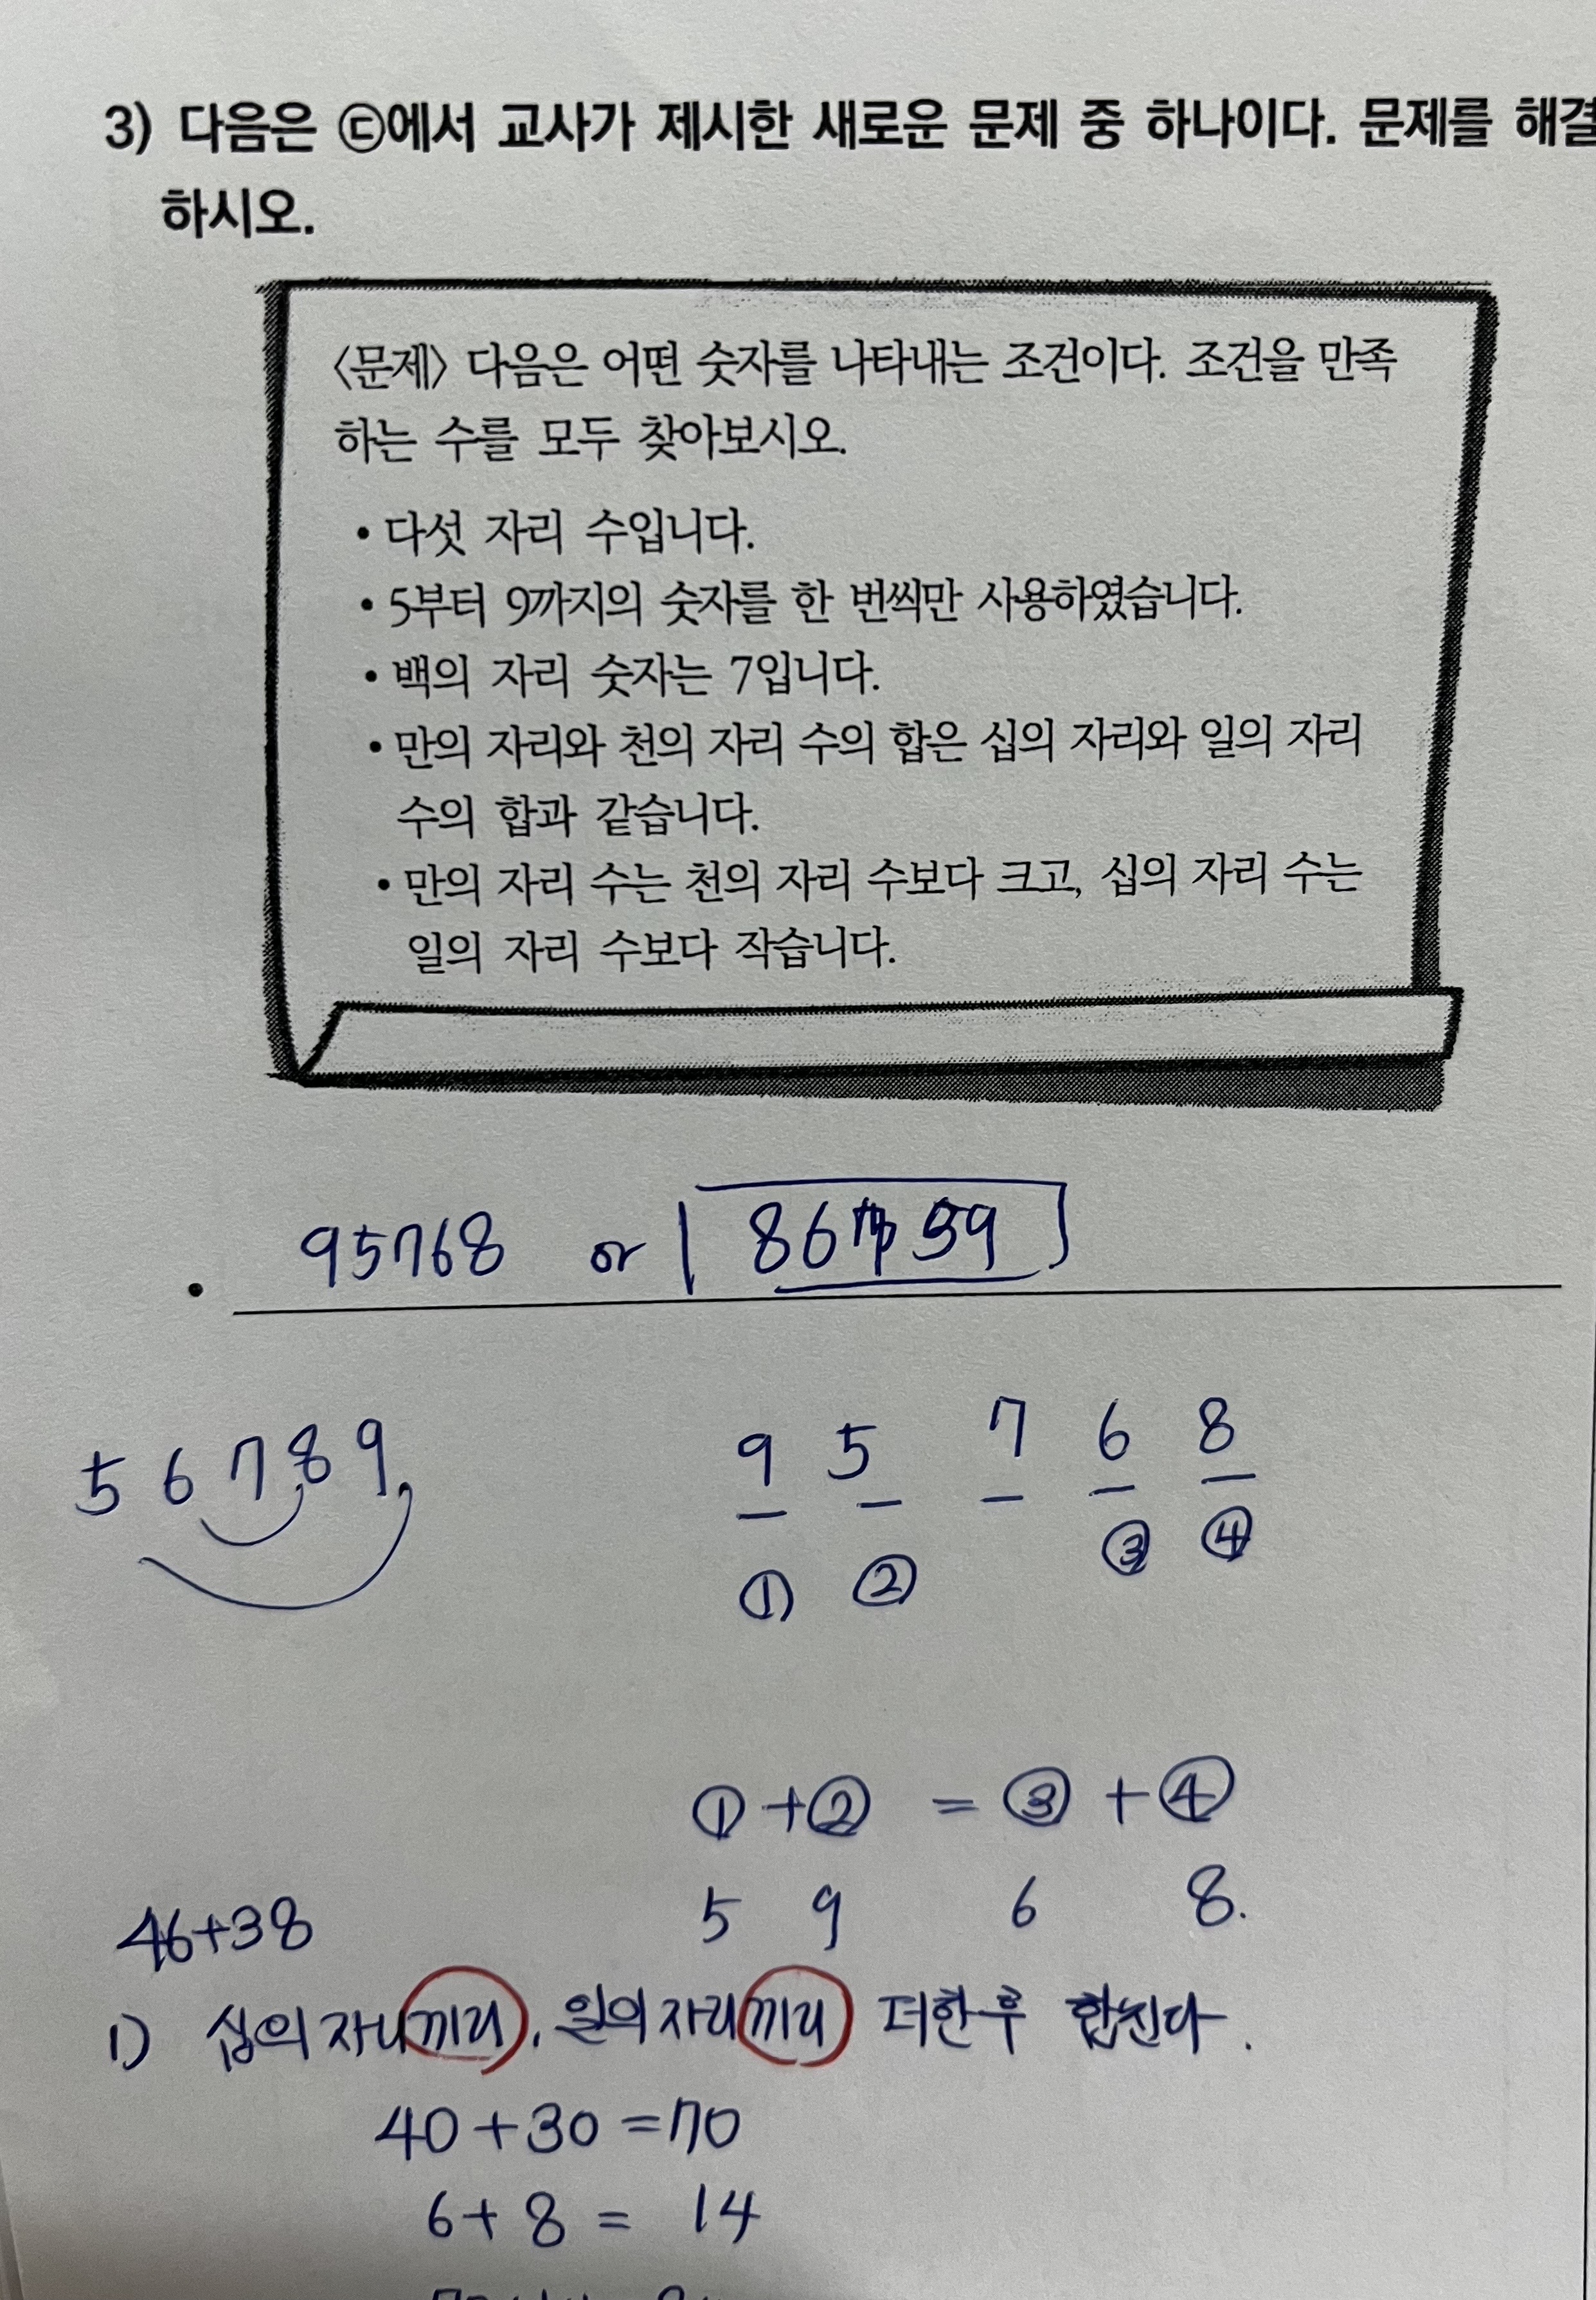 3) 다음은 ㉢에서 교사가 제시한 새로운 문제 중 하나이다. 문제를 해결
하시오.
〈문제〉 다음은 어떤 숫자를 나타내는 조건이다. 조건을 만족
하는 수를 모두 찾아보시오.
• 다섯 자리 수입니다.
• 5부터 9까지의 숫자를 한 번씩만 사용하였습니다.
• 백의 자리 숫자는 7입니다.
• 만의 자리와 천의 자리 수의 합은 십의 자리와 일의 자리
수의 합과 같습니다.
• 만의 자리 수는 천의 자리 수보다 크고, 십의 자리 수는
일의 자리 수보다 작습니다.
• 95768 or 86759
5 6 7 8 9
9 5 7 6 8
① ② ③ ④
① + ② = ③ + ④
5 9 6 8.
46+38
1) 십의 자리끼리, 일의 자리끼리 더한 후 합친다.
40+30=70
6+8= 14